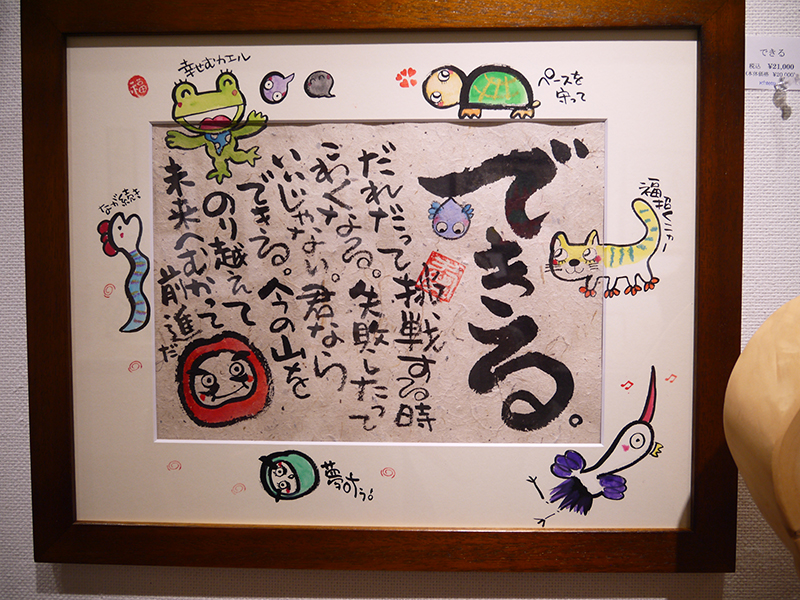 できる。
だれだって挑戦する時
こわくなる。失敗したって
いいじゃない。君なら
できる。今の山を
のり越えて
未来へむかって
前進だ
幸せむカエル
ペースを
守って
福招くニャー
なが続き
夢叶う!
福
できる
税込 ¥21,000
(本体価格 ¥20,000)